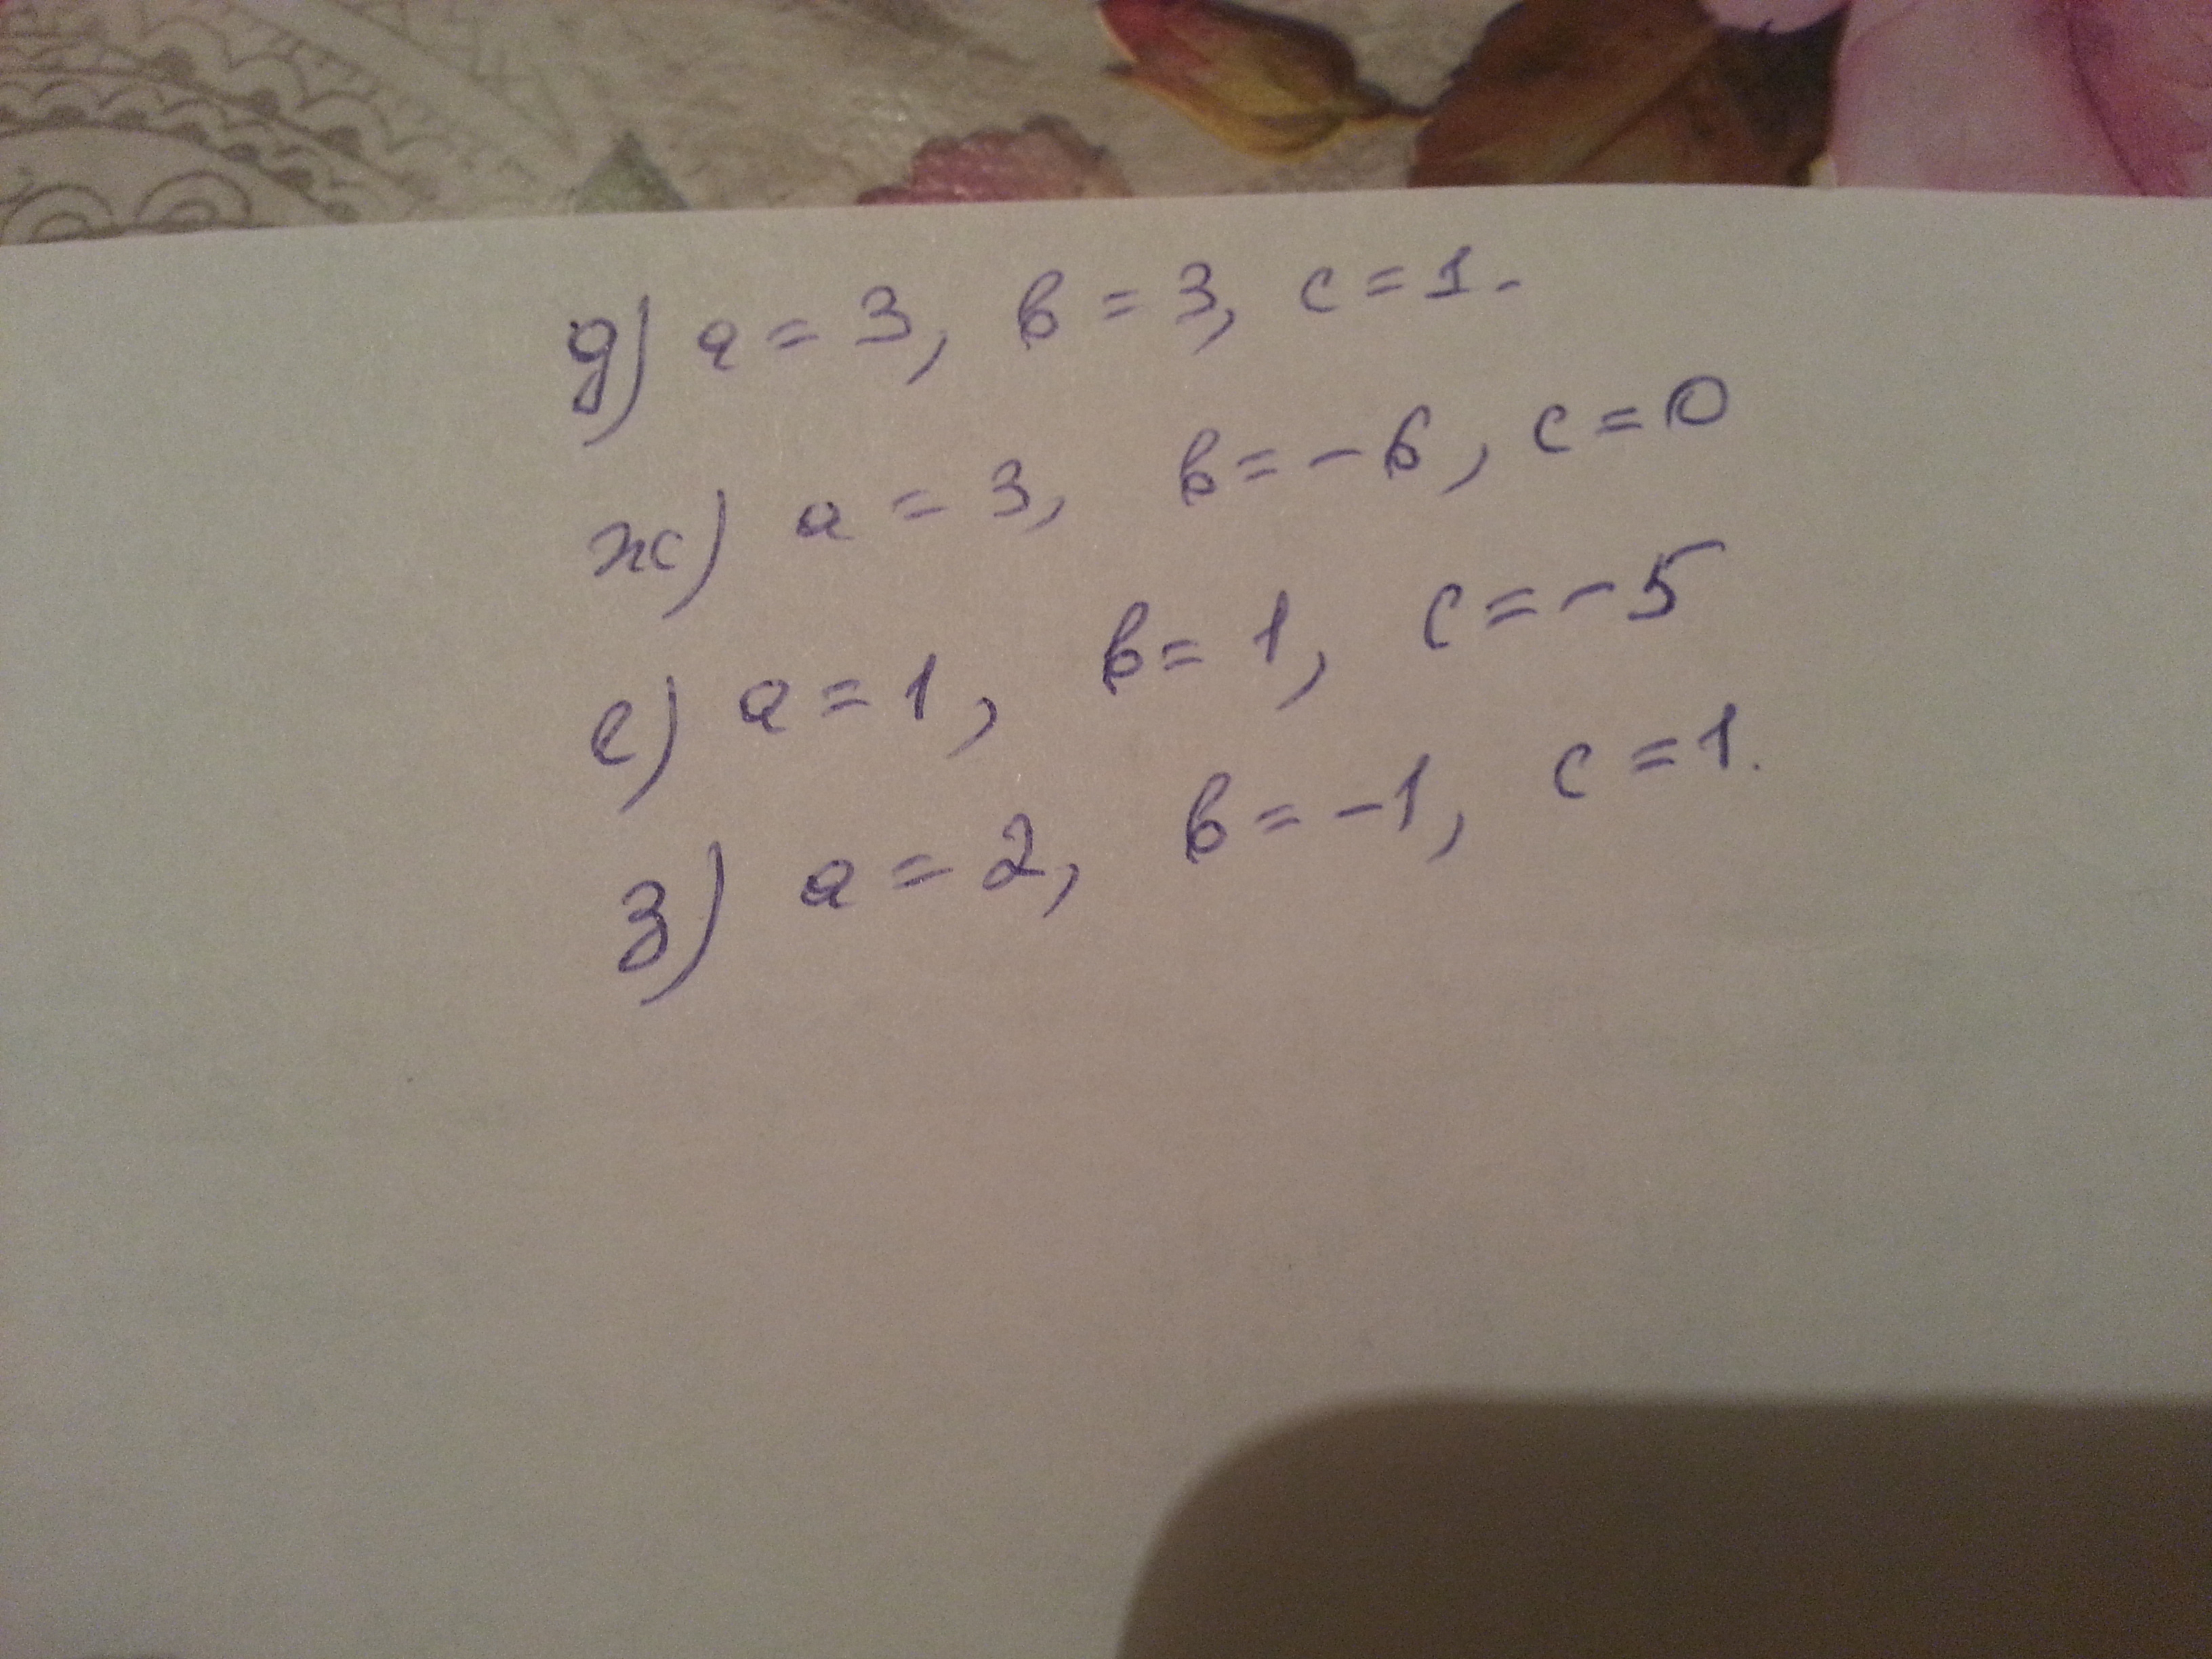 д) a = 3, b = 3, c = 1.
ж) a = 3, b = -6, c = 0
е) a = 1, b = 1, c = -5
з) a = 2, b = -1, c = 1.